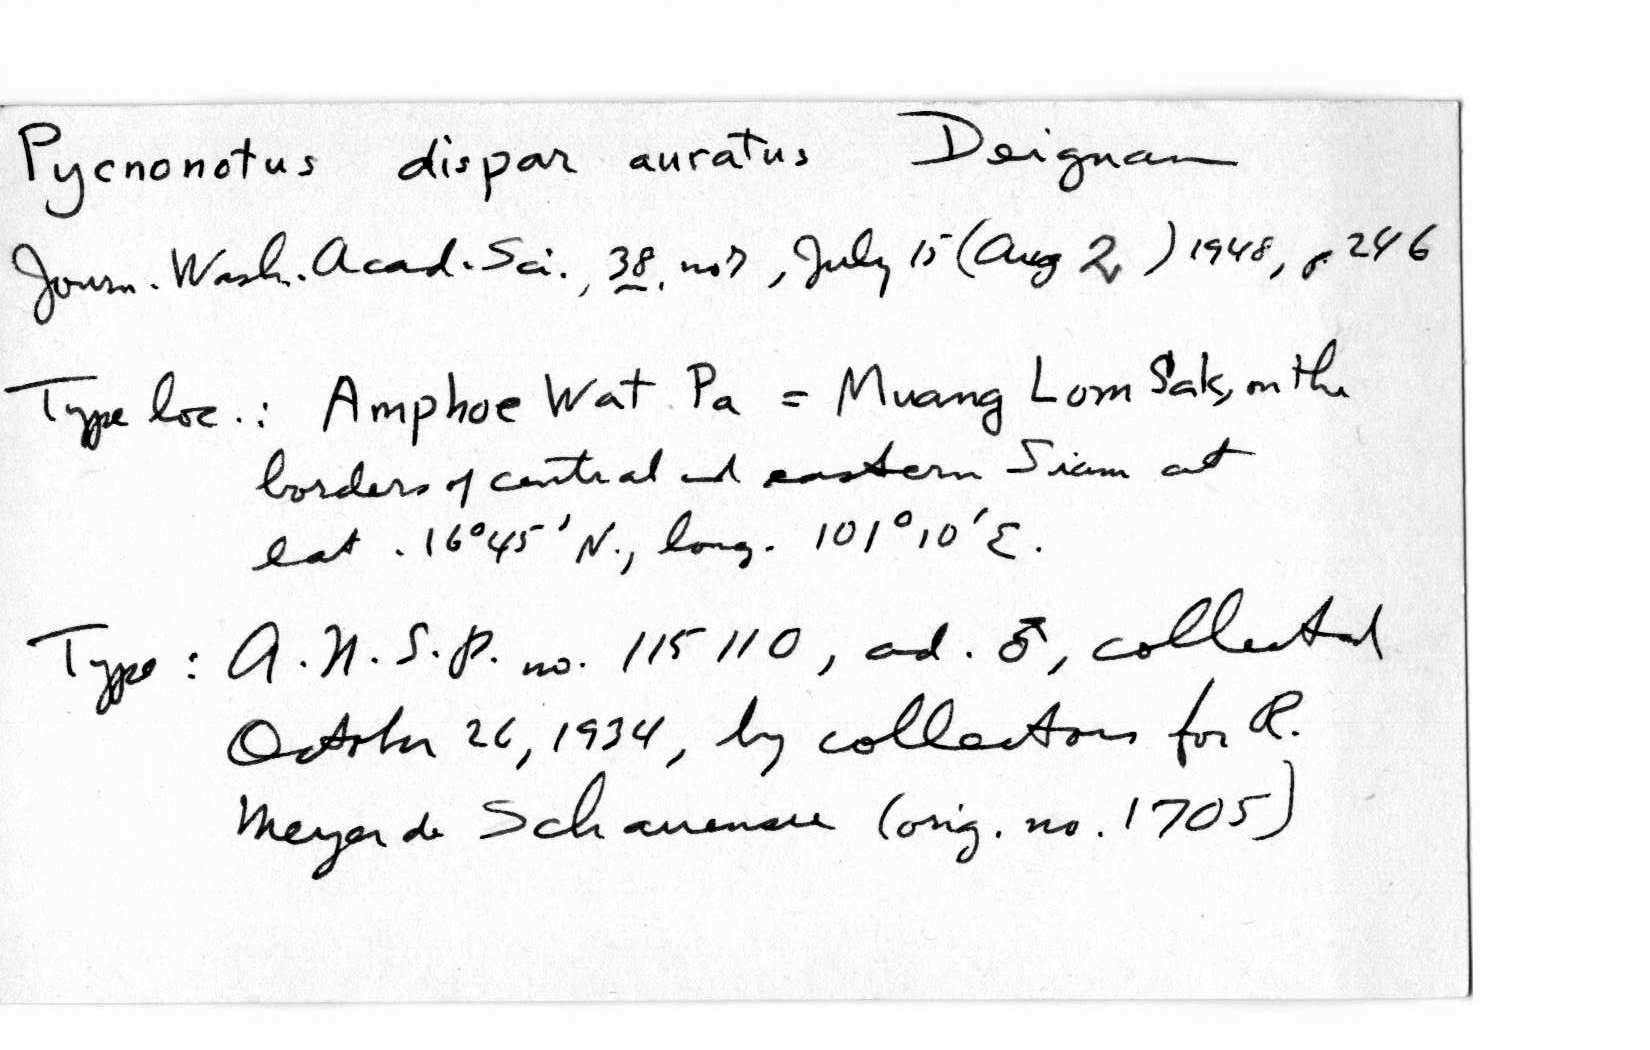 Pycnonotus dispar auratus Deignan
Journ. Wash. Acad. Sci., 38, no 7, July 15 (Aug 2) 1948, p 246
Type loc.: Amphoe Wat Pa = Muang Lom Sak, on the
borders of central and eastern Siam at
lat. 16°45' N., long. 101°10' E.
Type: A.N.S.P. no. 115110, ad. ♂, collected
October 26, 1934, by collectors for R.
Meyer de Schauensee (orig. no. 1705)